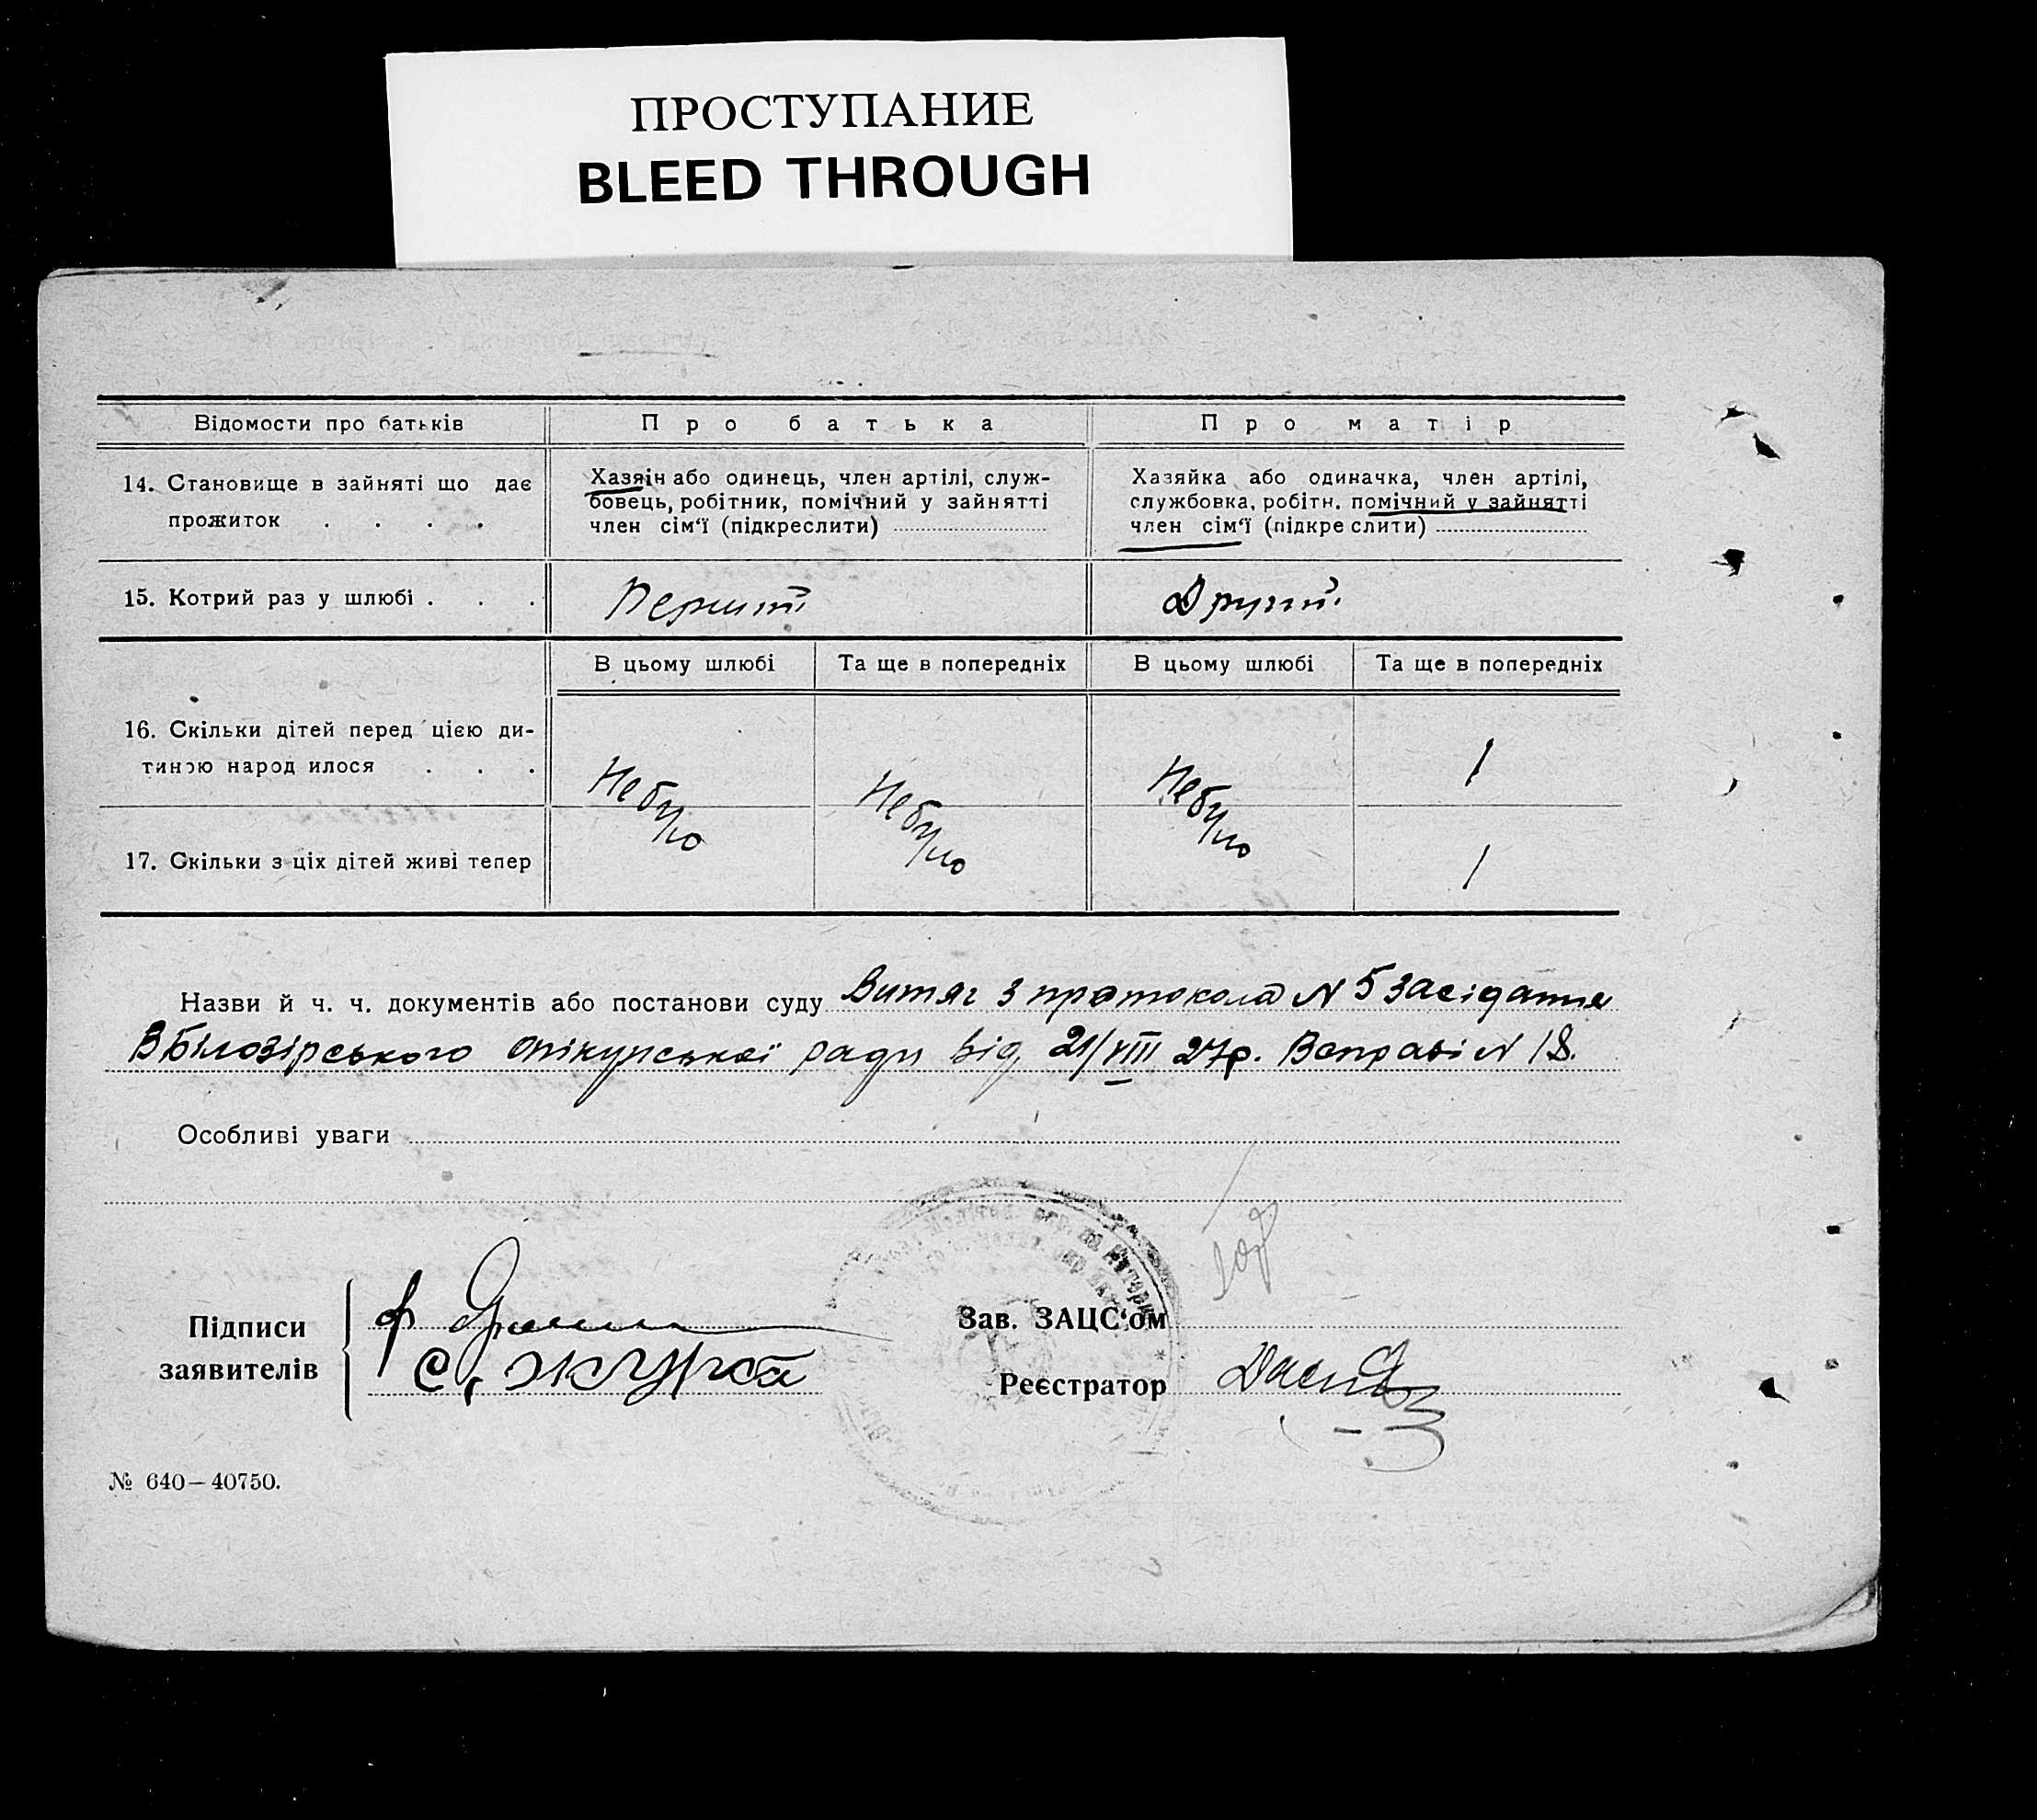 ПРОСТУПАНИЕ
BLEED THROUGH
Відомости про батьків
Про батька
Про матір
14. Становище в зайняті що дає
прожиток . . . .
Хазяїн або одинець, член артілі, служ-
бовець, робітник, помічний у зайнятті
член сім‘ї (підкреслити)
Хазяйка або одиначка, член артілі,
службовка, робітн. помічний у зайнятті
член сім‘ї (підкреслити)
15. Котрий раз у шлюбі . . .
Перший
Другий
В цьому шлюбі
Та ще в попередніх
В цьому шлюбі
Та ще в попередніх
16. Скільки дітей перед цією ди-
тиною народилося . . .
1
17. Скільки з ціх дітей живі тепер
Не було
Не було
Не було
1
Назви й ч. ч. документів або постанови суду Витяг з протокола N 5 засідання
В Білозірського опікунської ради від 21/VIII 27р. В справі N 18.
Особливі уваги
Підписи
заявителів
Зав. ЗАЦС‘ом
Реєстратор
№ 640—40750.